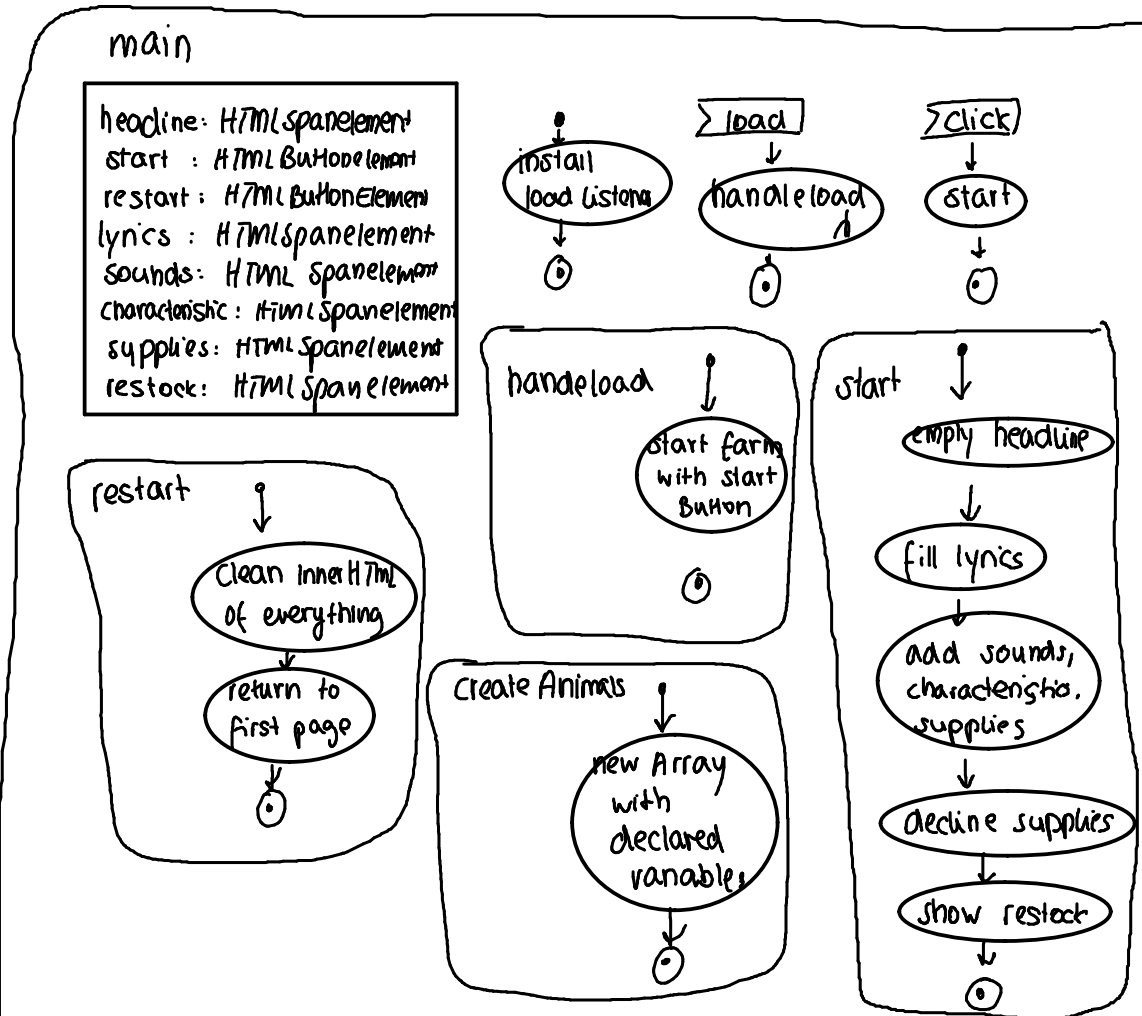 main
headline: HTMLSpanelement
start : HTMLButtonelement
restart: HTMLButtonElement
lyrics : HTMLSpanelement
sounds: HTML Spanelement
characteristic: HTMLSpanelement
supplies: HTMLSpanelement
restock: HTMLSpanelement
install
load Listener
load
handleload
click
start
handeload
start farm
with start
Button
start
empty headline
fill lyrics
add sounds,
characteristic.
supplies
decline supplies
show restock
restart
Clean innerHTML
of everything
return to
first page
Create Animals
new Array
with
declared
variables